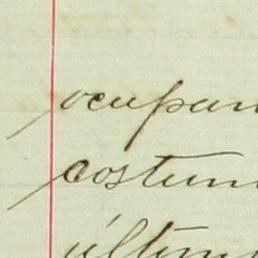 ocupan
costum
últim